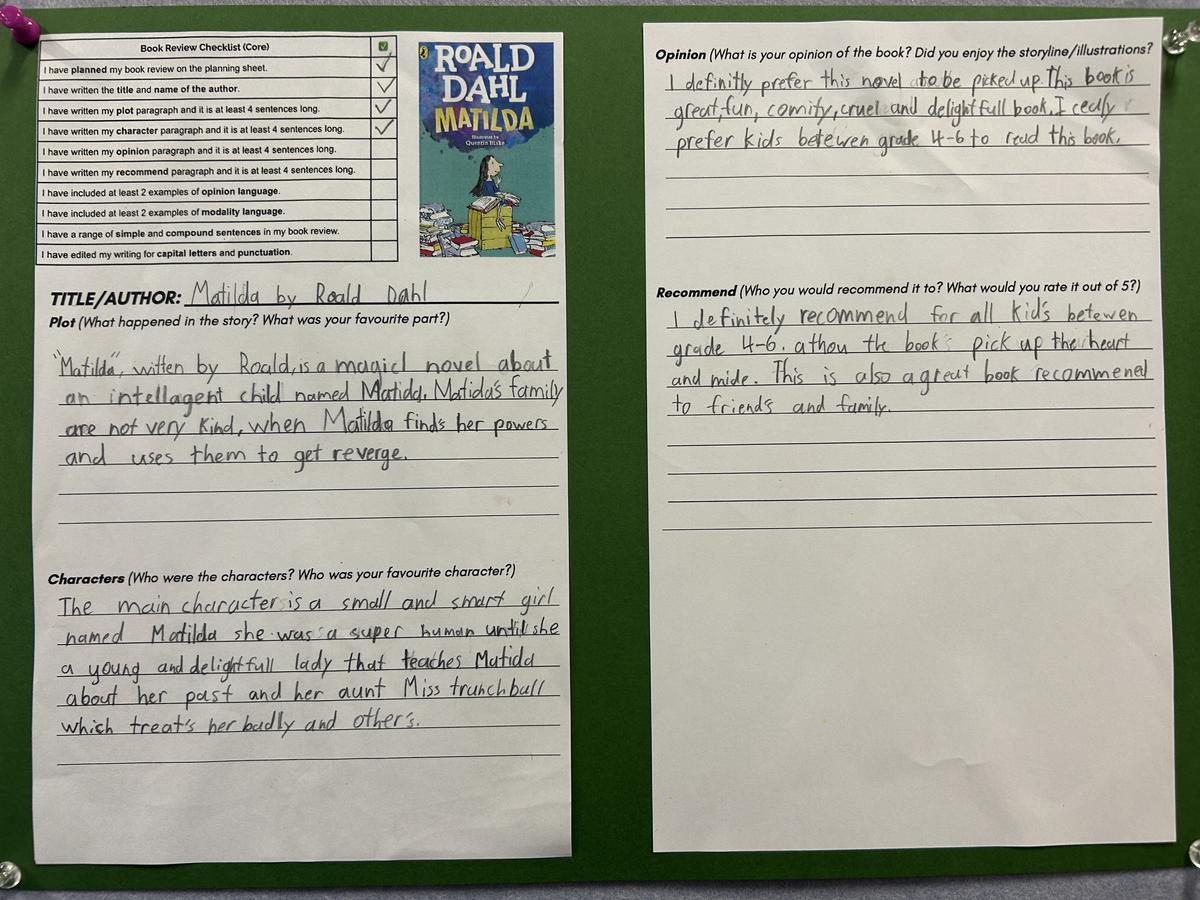 Book Review Checklist (Core)
I have planned my book review on the planning sheet.
I have written the title and name of the author.
I have written my plot paragraph and it is at least 4 sentences long.
I have written my character paragraph and it is at least 4 sentences long.
I have written my opinion paragraph and it is at least 4 sentences long.
I have written my recommend paragraph and it is at least 4 sentences long.
I have included at least 2 examples of opinion language.
I have included at least 2 examples of modality language.
I have a range of simple and compound sentences in my book review.
I have edited my writing for capital letters and punctuation.
ROALD
DAHL
MATILDA
Illustrated by
Quentin Blake
TITLE/AUTHOR: Matilda by Roald Dahl
Plot (What happened in the story? What was your favourite part?)
"Matilda", witten by Roald, is a magicl novel about
an intellagent child named Matida. Matida's family
are not very kind, when Matilda find's her powers
and uses them to get reverge.
Characters (Who were the characters? Who was your favourite character?)
The main character is a small and smart girl
named Matilda she was a super human until she
a young and delightfull lady that teaches Matida
about her past and her aunt Miss trunchbull
which treat's her badly and other's.
Opinion (What is your opinion of the book? Did you enjoy the storyline/illustrations?
I definitly prefer this novel to be picked up. This book is
great, fun, comity, cruel and delightfull book. I
prefer kids betewen grade 4-6 to read this book.
Recommend (Who you would recommend it to? What would you rate it out of 5?)
I definitely recommend for all kid's betewen
grade 4-6. athou the book's pick up the heart
and mide. This is also a great book recommened
to friend's and family.